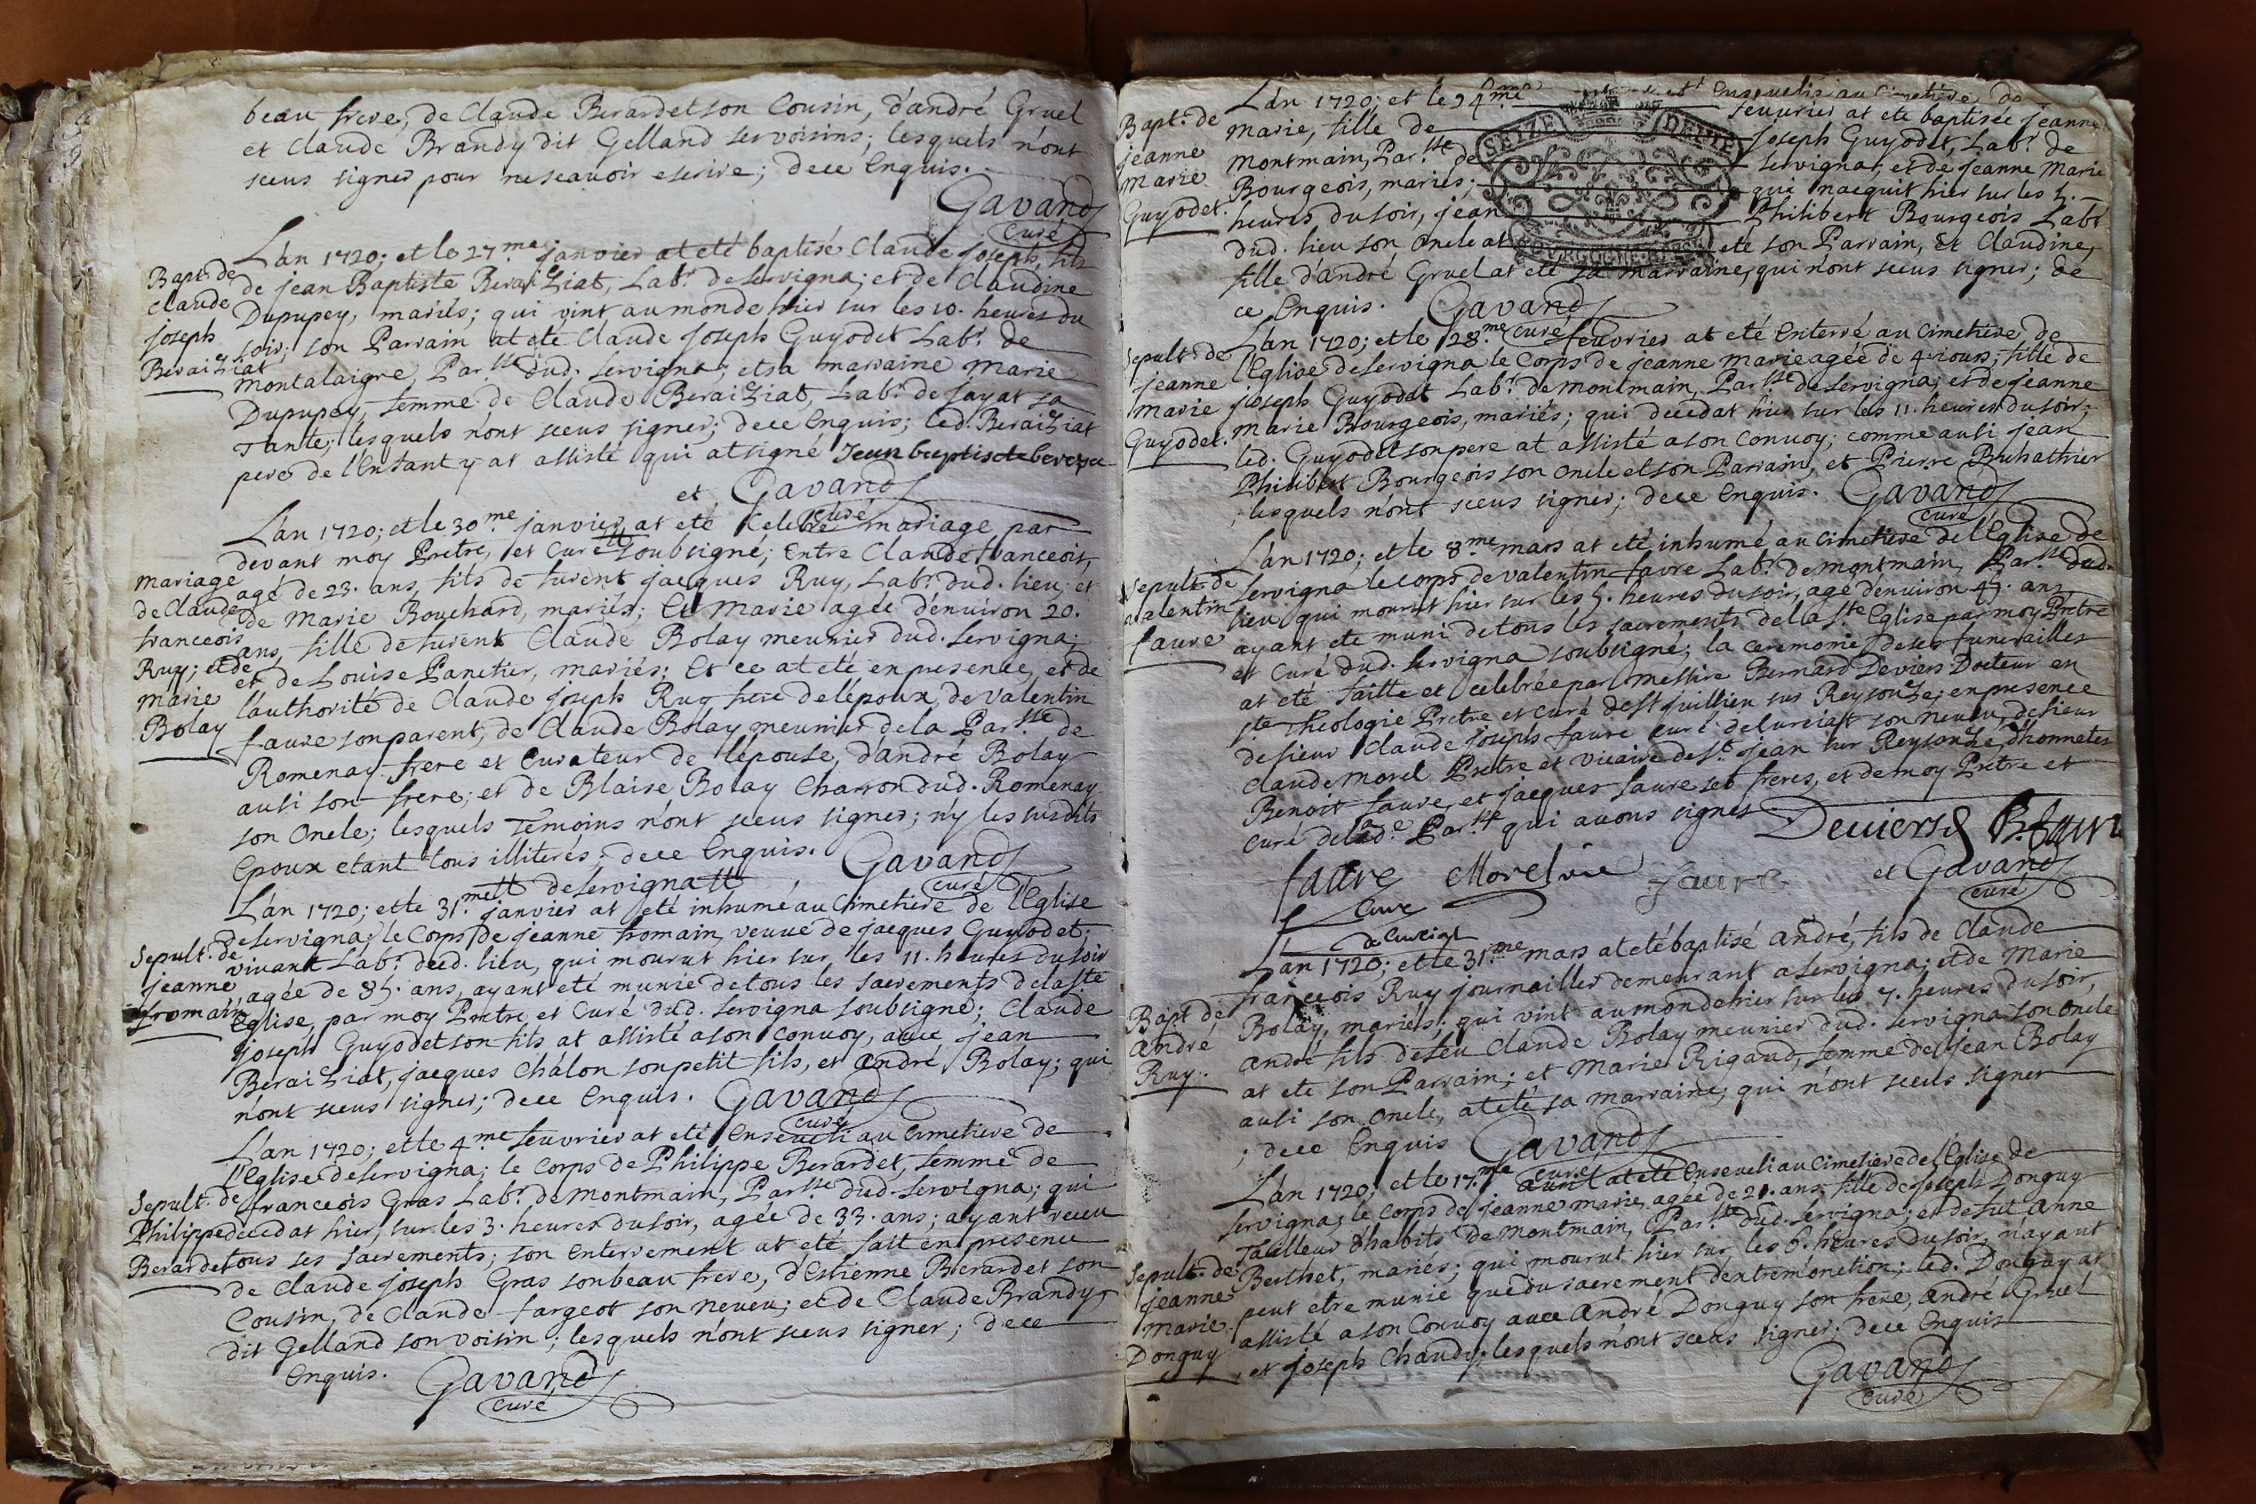 beau frere, de Claude Berardet son Cousin, d'andré Gruel
et Claude Brandy dit Gelland ses voisins; lesquels n'ont
sceus signer pour ne scavoir escrire; de ce Enquis.
Gavand
curé
Bapt. de
Claude
Joseph
Beraiziat
L'an 1720; et le 27.me janvier at eté baptisé Claude Joseph, fils
de jean Baptiste Beraiziat, Lab.r de Servigna; et de Claudine
Dupupey, mariés; qui vint au monde hier sur les 10. heures du
soir; son Parrain at eté Claude Joseph Guyodet Lab.r de
Montalaigre, Par.sse dud. Servigna; et sa marraine Marie
Dupupey, femme de Claude Beraiziat, Lab.r de Jayat sa
Tante; lesquels n'ont sceus signer; de ce Enquis; led. Beraiziat
pere de l'Enfant y at assisté qui at signé Jean baptiste
et Gavand
curé
mariage
de Claude
franceois
Ruy; et de
marie
Bolay
L'an 1720; et le 30.me janvier at eté Celebré mariage par
devant moy Pretre, et Curé soubsigné; Entre Claude franceois,
agé de 23. ans, fils de furent jacques Ruy, Lab.r dud. lieu; et
de Marie Bouchard, mariés; Et Marie agée d'environ 20.
ans, fille de furent Claude Bolay meunier dud. Servigna;
et de Louise Panetier, mariés; Et ce at eté en presence, et de
l'authorité de Claude Joseph Ruy frere de l'époux, de Valentin
faure son parent, de Claude Bolay meunier de la Par.sse de
Romenay frere et Curateur de l'épouse, d'andré Bolay
ausi son frere; et de Blaise Bolay Charron dud. Romenay
son Oncle; lesquels Temoins n'ont sceus signer; n'y les susdits
Epoux etant tous illiterés; de ce Enquis. Gavand
curé
de Servigna
Sepult. de
jeanne
fromain
L'an 1720; et le 31.me janvier at eté inhumé au Cimetiere de l'Eglise
de Servigna; le Corps de jeanne fromain, veuve de jacques Guyodet;
vivant Lab.r dud. lieu, qui mourut hier sur les 11. heures du soir
agée de 85. ans, ayant eté munie de tous les sacrements de la ste
Eglise, par moy Pretre et Curé dud. Servigna soubsigné; Claude
Joseph Guyodet son fils at assisté a son Convoy, avec jean
Beraiziat, jacques Châlon son petit fils, et André Bolay; qui
n'ont sceus signer; de ce Enquis. Gavand
curé
Sepult. de
Philippe
Berardet
L'an 1720; et le 4.me feuvrier at eté Enseveli au Cimetiere de
l'Eglise de Servigna; le Corps de Philippe Berardet, femme de
franceois Gras Lab.r de Montmain, Par.sse dud. Servigna; qui
decedat hier, sur les 3. heures du soir, agée de 33. ans; ayant receu
tous ses sacrements; son Enterrement at eté fait en presence
de Claude Joseph Gras son beau frere, d'Estienne Berardet son
Cousin, de Claude fargeot son neveu; et de Claude Brandy
dit Gelland son voisin; lesquels n'ont sceus signer; de ce
Enquis. Gavand
curé
SEIZE DEN
Bapt. de
jeanne
Marie
Guyodet.
L'an 1720; et le 24.me feuvrier at eté baptisée jeanne
Marie, fille de Joseph Guyodet, Lab.r de
Montmain, Par.sse de Servigna, et de jeanne Marie
Bourgeois, mariés; qui nacquit hier sur les 5.
heures du soir, jean Philibert Bourgeois Lab.r
dud. lieu son Oncle at eté son Parrain, Et Claudine,
fille d'andré Gruel at eté sa marraine, qui n'ont sceus signer; de
ce Enquis. Gavand
curé
Sepult. de
jeanne
Marie
Guyodet.
L'an 1720; et le 28.me feuvrier at eté Enterré au Cimetiere de
l'Eglise de Servigna le Corps de jeanne Marie agée de 4. jours; fille de
Joseph Guyodet Lab.r de Montmain, Par.sse de Servigna; et de jeanne
Marie Bourgeois, mariés; qui decedat hier sur les 11. heures du soir;
led. Guyodet son pere at assisté a son Convoy; comme ausi jean
Philibert Bourgeois son Oncle et son Parrain, et Pierre Buhathier
; lesquels n'ont sceus signer; de ce Enquis. Gavand
curé
Sepult. de
valentin
faure
L'an 1720; et le 8.me mars at eté inhumé au Cimetiere de l'Eglise de
Servigna le Corps de Valentin faure Lab.r de Montmain, Par.sse dud.
lieu qui mourut hier sur les 5. heures du soir, agé d'environ 45. ans,
ayant eté muni de tous les sacrements de la s.te Eglise par moy Pretre
et Curé dud. Servigna soubsigné; la ceremonie de ses funerailles
at eté faitte et celebrée par messire Bernard Deviers Docteur en
s.te Theologie Pretre et Curé de St Juillien sur Reysouze; en presence
de sieur Claude Joseph faure curé de Curciat son neveu, de sieur
Claude Morel Pretre et vicaire de S.t jean sur Reysouze, d'honnetes
Benoit faure, et jacques faure ses freres, et de moy Pretre et
Curé de lad.e Par.sse qui avons signés Deviers B. faure
faure Morel vic faure et Gavand
Curé curé
de Curciat
Bapt de
André
Ruy.
L'an 1720; et le 31.me mars at eté baptisé André, fils de Claude
franceois Ruy journailler demeurant a Servigna; et de Marie
Bolay, mariés; qui vint au monde hier sur les 7. heures du soir,
André fils de feu Claude Bolay meunier dud. Servigna son Oncle
at eté son Parrain; et Marie Rigaud, femme de jean Bolay
ausi son Oncle, at eté sa marraine; qui n'ont sceus signer
; de ce Enquis Gavand
curé
Sepult. de
jeanne
Marie
Donguy
L'an 1720; et le 17.me avril at eté Enseveli au Cimetiere de l'Eglise de
Servigna; le Corps de jeanne Marie, agée de 21. ans, fille de Joseph Donguy
Tailleur d'habits de Montmain, Par.sse dud. Servigna; et de fut Anne
Berthet, mariés; qui mourut hier sur les 6. heures du soir, n'ayant
peut etre munie que du sacrement d'extremonction; led. Donguy at
assisté a son Convoy avec André Donguy son frere, André Gruel
et Joseph Chandy; lesquels n'ont sceus signer; de ce Enquis
Gavand
curé